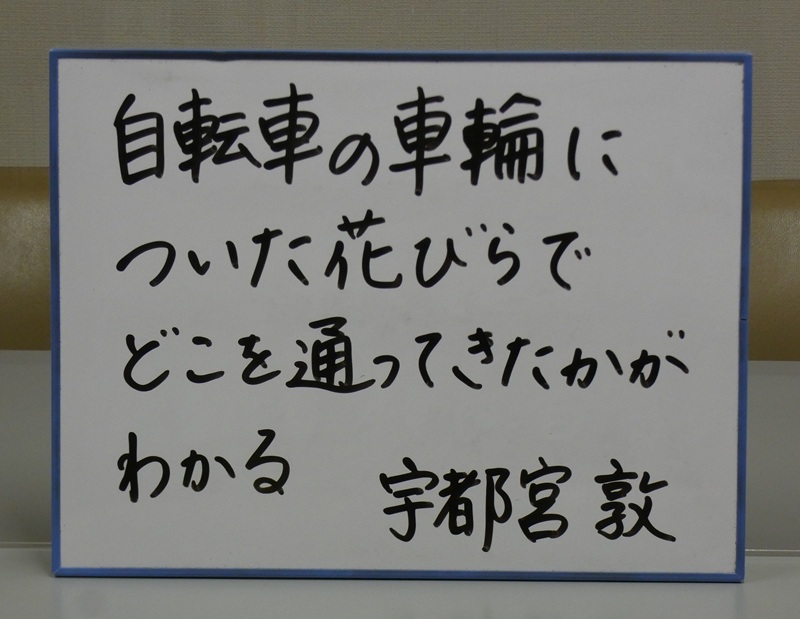 自転車の車輪に
ついた花びらで
どこを通ってきたかが
わかる
宇都宮敦